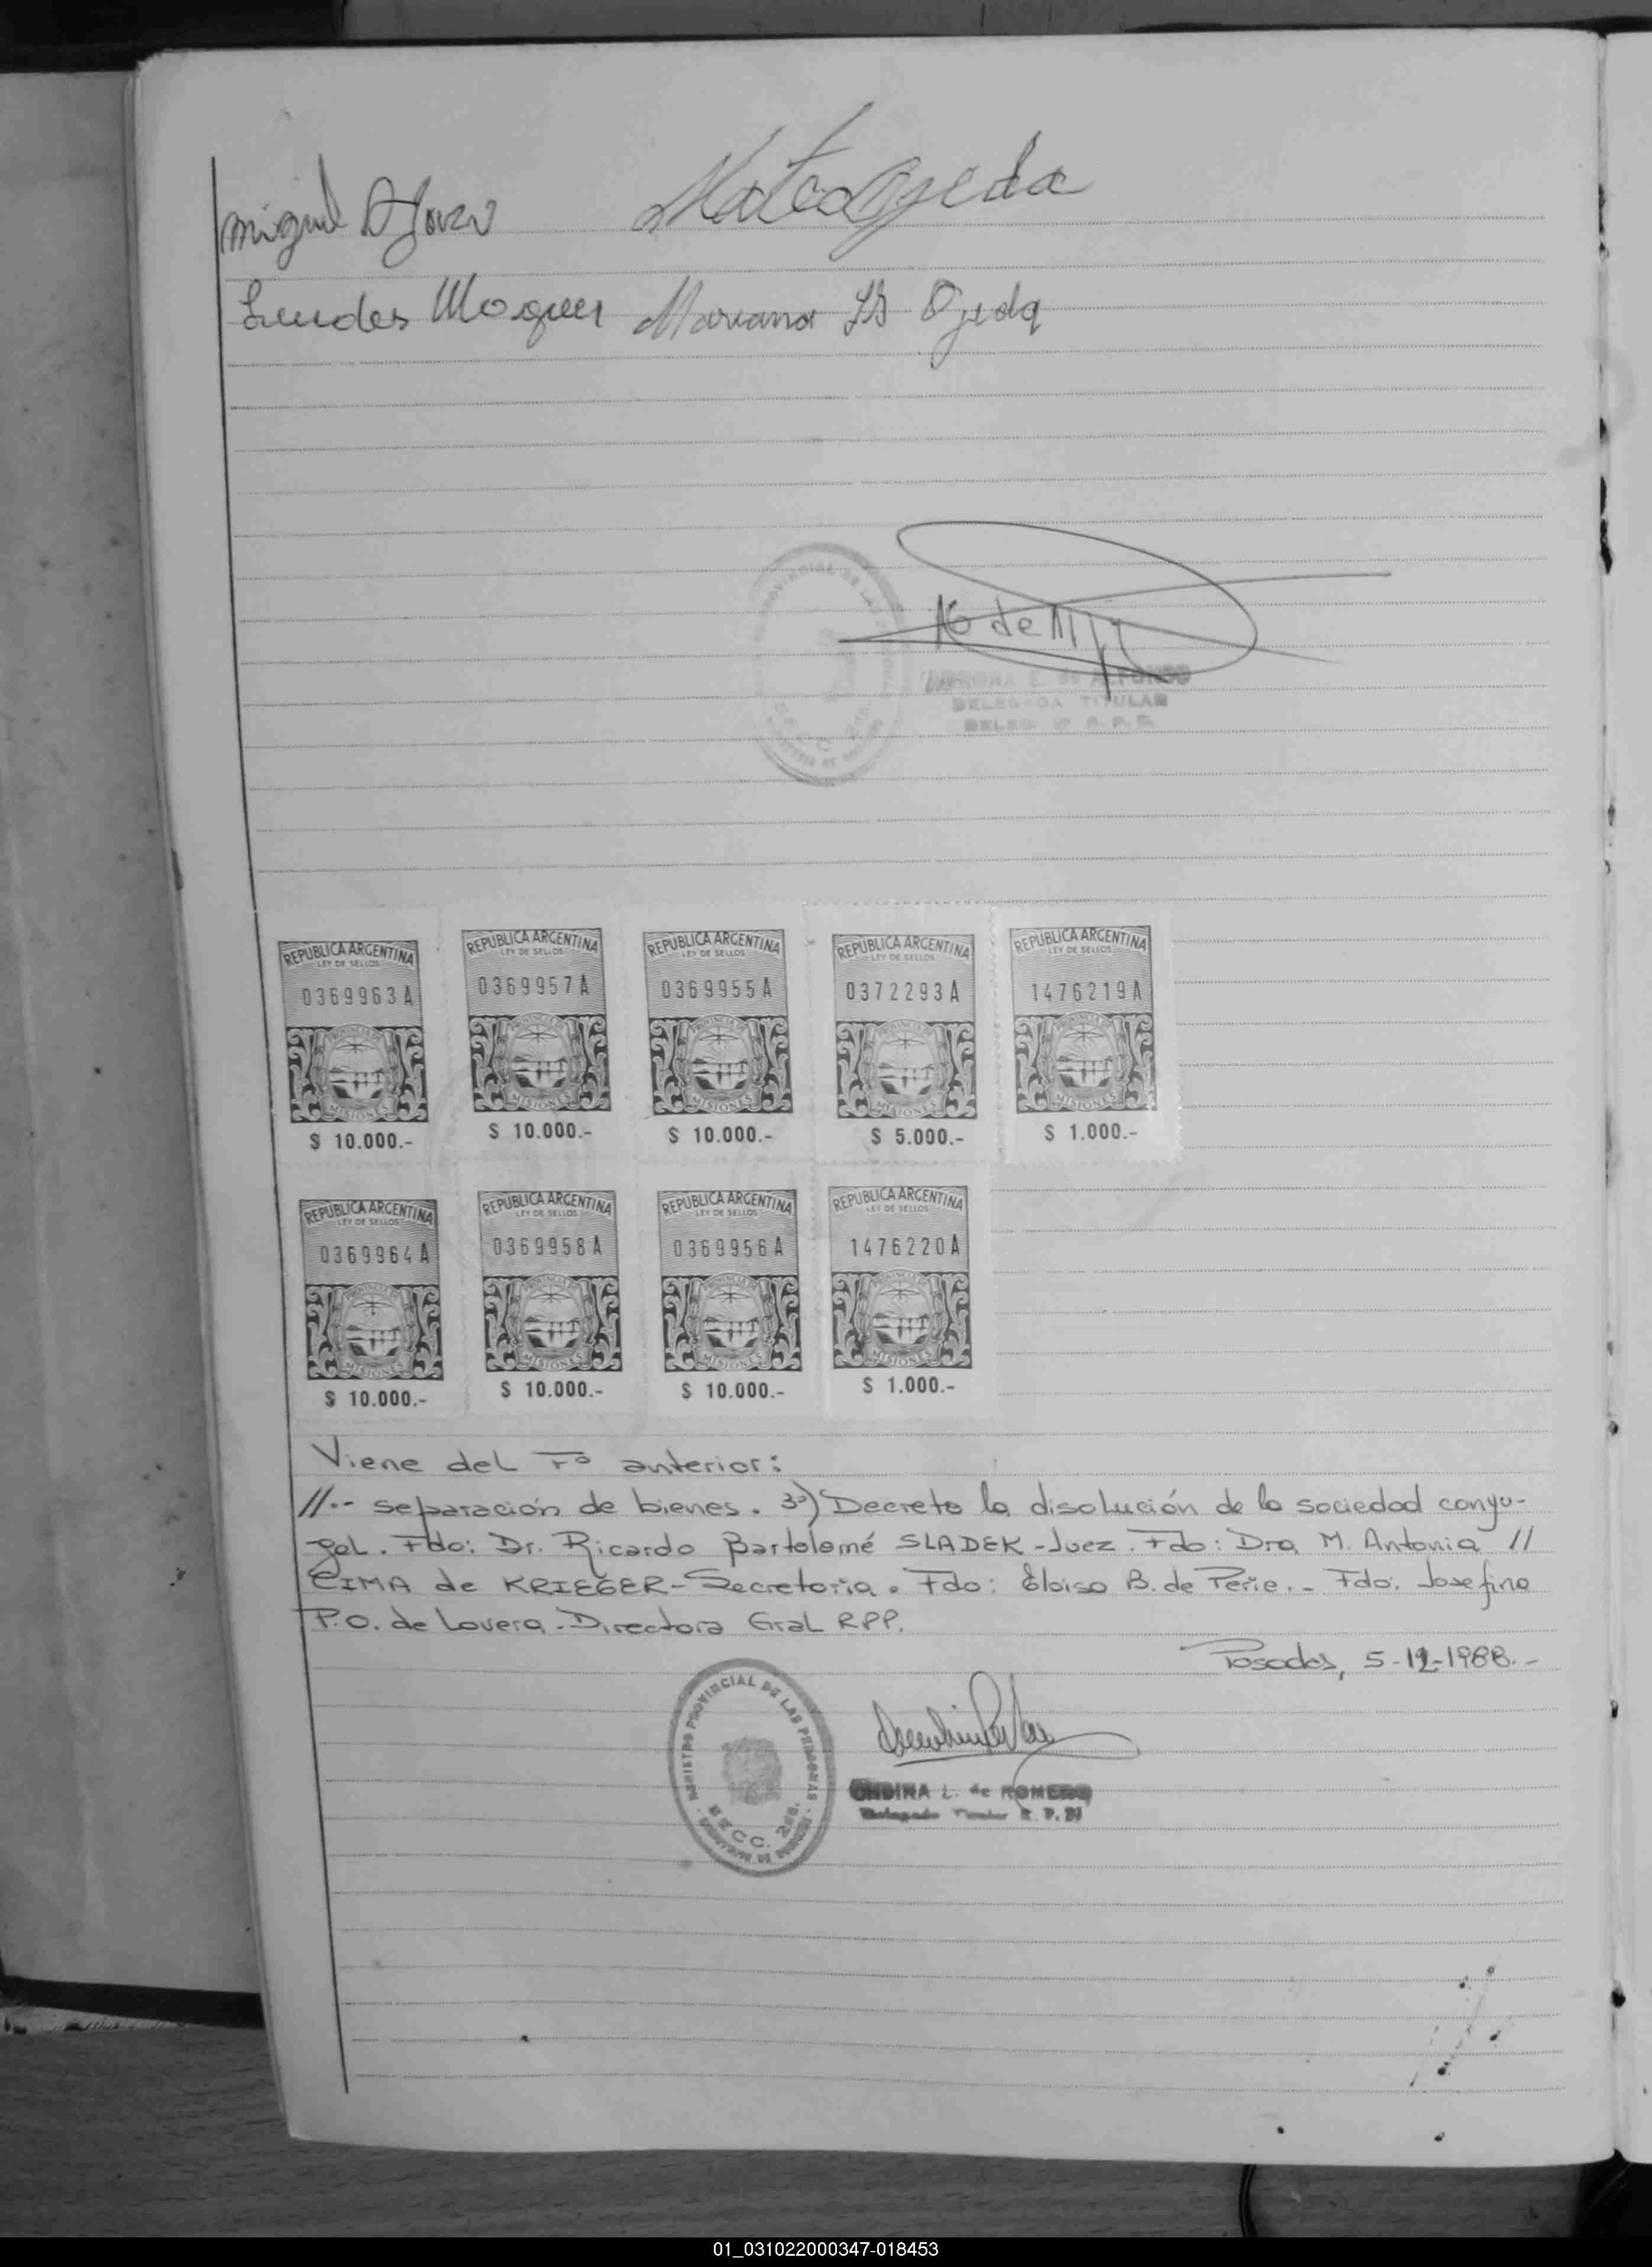 Miguel
Mateo Ojeda
Mariana Ojeda
de
E. de ALFONSO
DELEGADA TITULAR
REPUBLICA ARGENTINA REPUBLICA ARGENTINA REPUBLICA ARGENTINA REPUBLICA ARGENTINA REPUBLICA ARGENTINA
LEY DE SELLOS LEY DE SELLOS LEY DE SELLOS LEY DE SELLOS LEY DE SELLOS
0369963A 0369957A 0369955A 0372293A 1476219A
PROVINCIA DE PROVINCIA DE PROVINCIA DE PROVINCIA DE PROVINCIA DE
MISIONES MISIONES MISIONES MISIONES MISIONES
$ 10.000.- $ 10.000.- $ 10.000.- $ 5.000.- $ 1.000.-
REPUBLICA ARGENTINA REPUBLICA ARGENTINA REPUBLICA ARGENTINA REPUBLICA ARGENTINA
LEY DE SELLOS LEY DE SELLOS LEY DE SELLOS LEY DE SELLOS
0369964A 0369958A 0369956A 1476220A
PROVINCIA DE PROVINCIA DE PROVINCIA DE PROVINCIA DE
MISIONES MISIONES MISIONES MISIONES
$ 10.000.- $ 10.000.- $ 10.000.- $ 1.000.-
Viene del Fº anterior:
//-- separación de bienes. 3º) Decreto la disolución de la sociedad conyu-
gal. Fdo: Dr. Ricardo Bartolomé SLADEK - Juez. Fdo: Dra M. Antonia //
CIMA de KRIEGER - Secretaria. Fdo: Eloisa B. de Perie.- Fdo: Josefina
P.O. de Lovera - Directora Gral RPP.
Posadas, 5-12-1988.-
REGISTRO PROVINCIAL DE LAS PERSONAS
SECC. 2da.
ONDINA L. de ROMERO
Delegado Titular R. P. P.
01_031022000347-018453